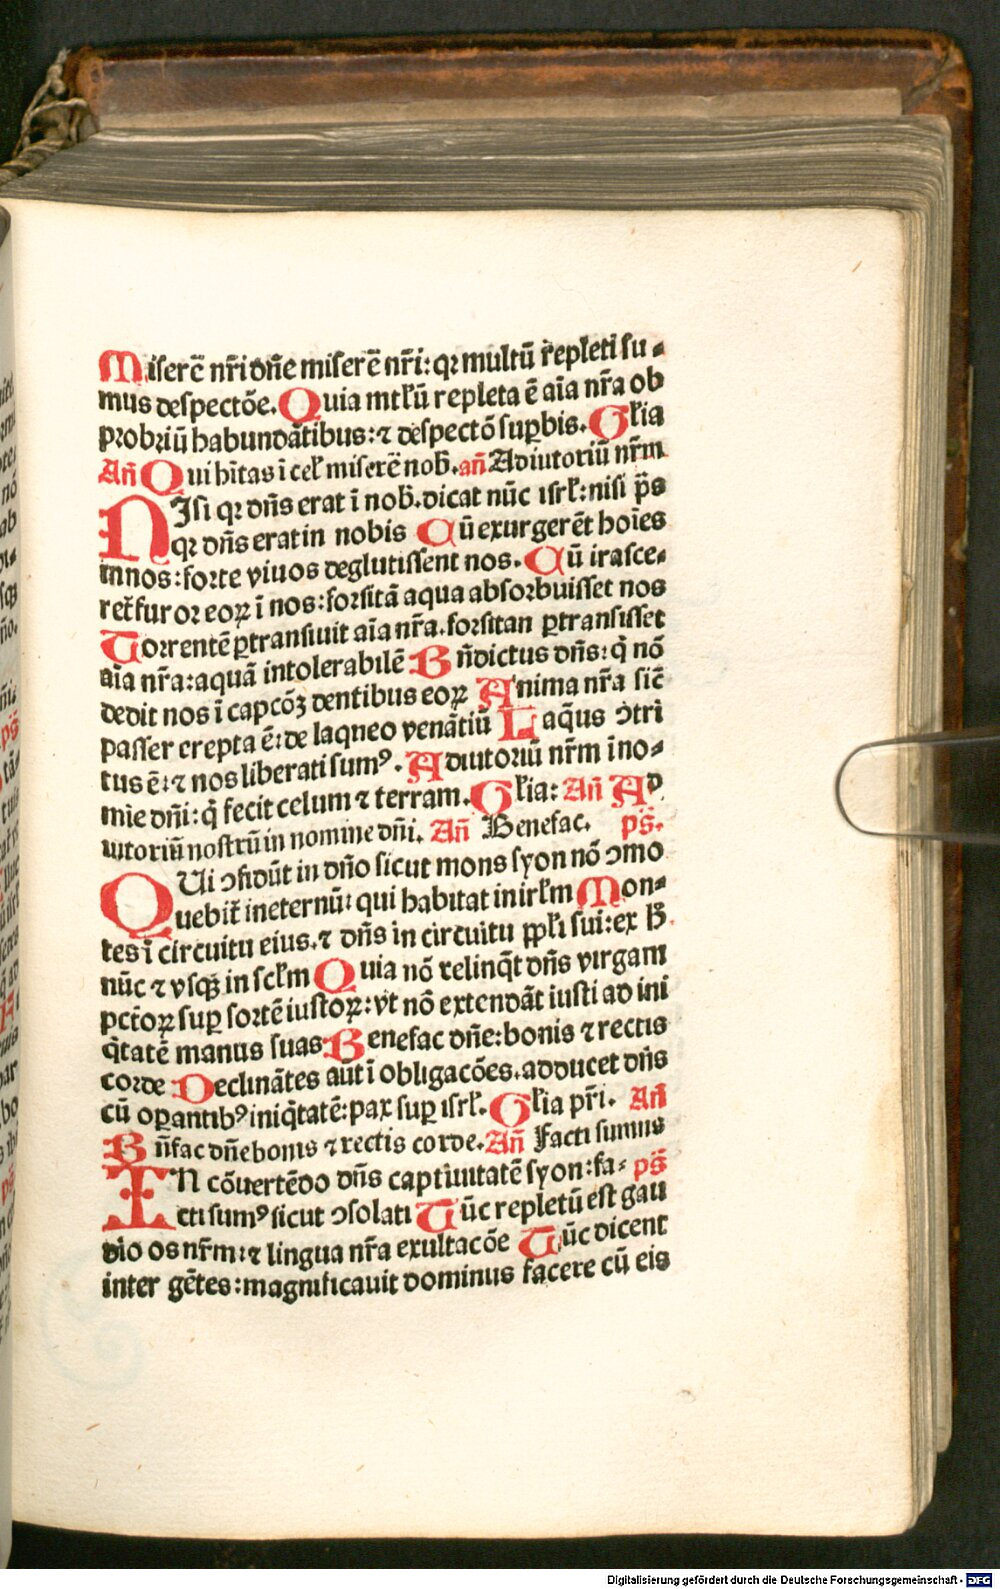 Miserē nr̄i dn̄e miserē nr̄i: qꝛ multū repleti su⸗
mus despectōe. Quia mtl̄ū repleta ē aīa nr̄a ob
probriū habundātibus: ⁊ despectō suꝑbis. Gl̄ia
An̄ Qui hītas ī cel̄ miserē nob̄. an̄ Adiutoriū nr̄m
NJsi qꝛ dn̄s erat ī nob̄. dicat nūc isrl̄: nisi p̄s
qꝛ dn̄s erat in nobis Cū exurgerēt hoīes
in nos: forte viuos deglutissent nos. Cū irasce⸗
ret̄ furor eoꝝ ī nos: forsitā aqua absorbuisset nos
Torrentē ꝑtransiuit aīa nr̄a. forsitan ꝑtransisset
aīa nr̄a: aquā intolerabilē Bn̄dictus dn̄s: q̄ nō
dedit nos ī capcōꝫ dentibus eoꝝ Anima nr̄a sic̄
passer erepta ē: de laqneo venātiū Laq̄us ↄtri
tus ē: ⁊ nos liberati sumꝰ. Adiutoriū nr̄m ī no⸗
mīe dn̄i: q̄ fecit celum ⁊ terram. Gl̄ia: An̄ Ad
iutoriū nostrū in nomine dn̄i. An̄ Benefac. ps̄.
QUi ↄfidūt in dn̄o sicut mons syon nō ↄmo
uebit̄ in eternū: qui habitat in irl̄m Mon⸗
tes ī circuitu eius. ⁊ dn̄s in circuitu ppl̄i sui: ex h̄
nūc ⁊ vsqꝫ in scl̄m Quia nō relinq̄t dn̄s virgam
pctōꝝ suꝑ sortē iustoꝝ: vt nō extendāt iusti ad ini
q̄tatē manus suas Benefac dn̄e: bonis ⁊ rectis
corde Declinātes aūt ī obligacōes. adducet dn̄s
cū oꝑantibꝰ iniq̄tatē: pax suꝑ isrl̄. Gl̄ia pr̄i. An̄
Bn̄fac dn̄e bonis ⁊ rectis corde. An̄ Facti sumus
IN cōuertēdo dn̄s captiuitatē syon: fa⸗ ps̄
cti sumꝰ sicut ↄsolati Tūc repletū est gau
dio os nr̄m: ⁊ lingua nr̄a exultacōe Tūc dicent
inter gētes: magnificauit dominus facere cū eis
Digitalisierung gefördert durch die Deutsche Forschungsgemeinschaft - DFG